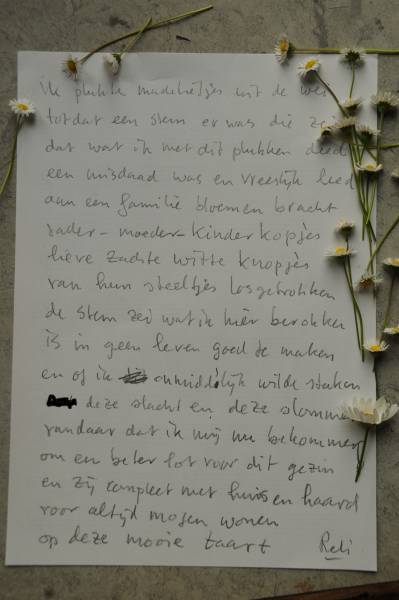 ik plukte madeliefjes uit de wei
totdat een stem er was die ze
dat wat ik met dit plukken deed
een misdaad was en vreeslijk leed
aan een familie bloemen bracht
vader-moeder-kinderkopjes
lieve zachte witte knopjes
van hun steeltjes losgetrokken
de stem zei wat ik hier berokken
is in geen leven goed te maken
en of ik onmiddelijk wilde staken
deze slacht en deze
vandaar dat ik mij nu bekommer
om en beter lot voor dit gezin
en zij compleet met huis en haard
voor altijd mogen wonen
op deze mooie taart Reli